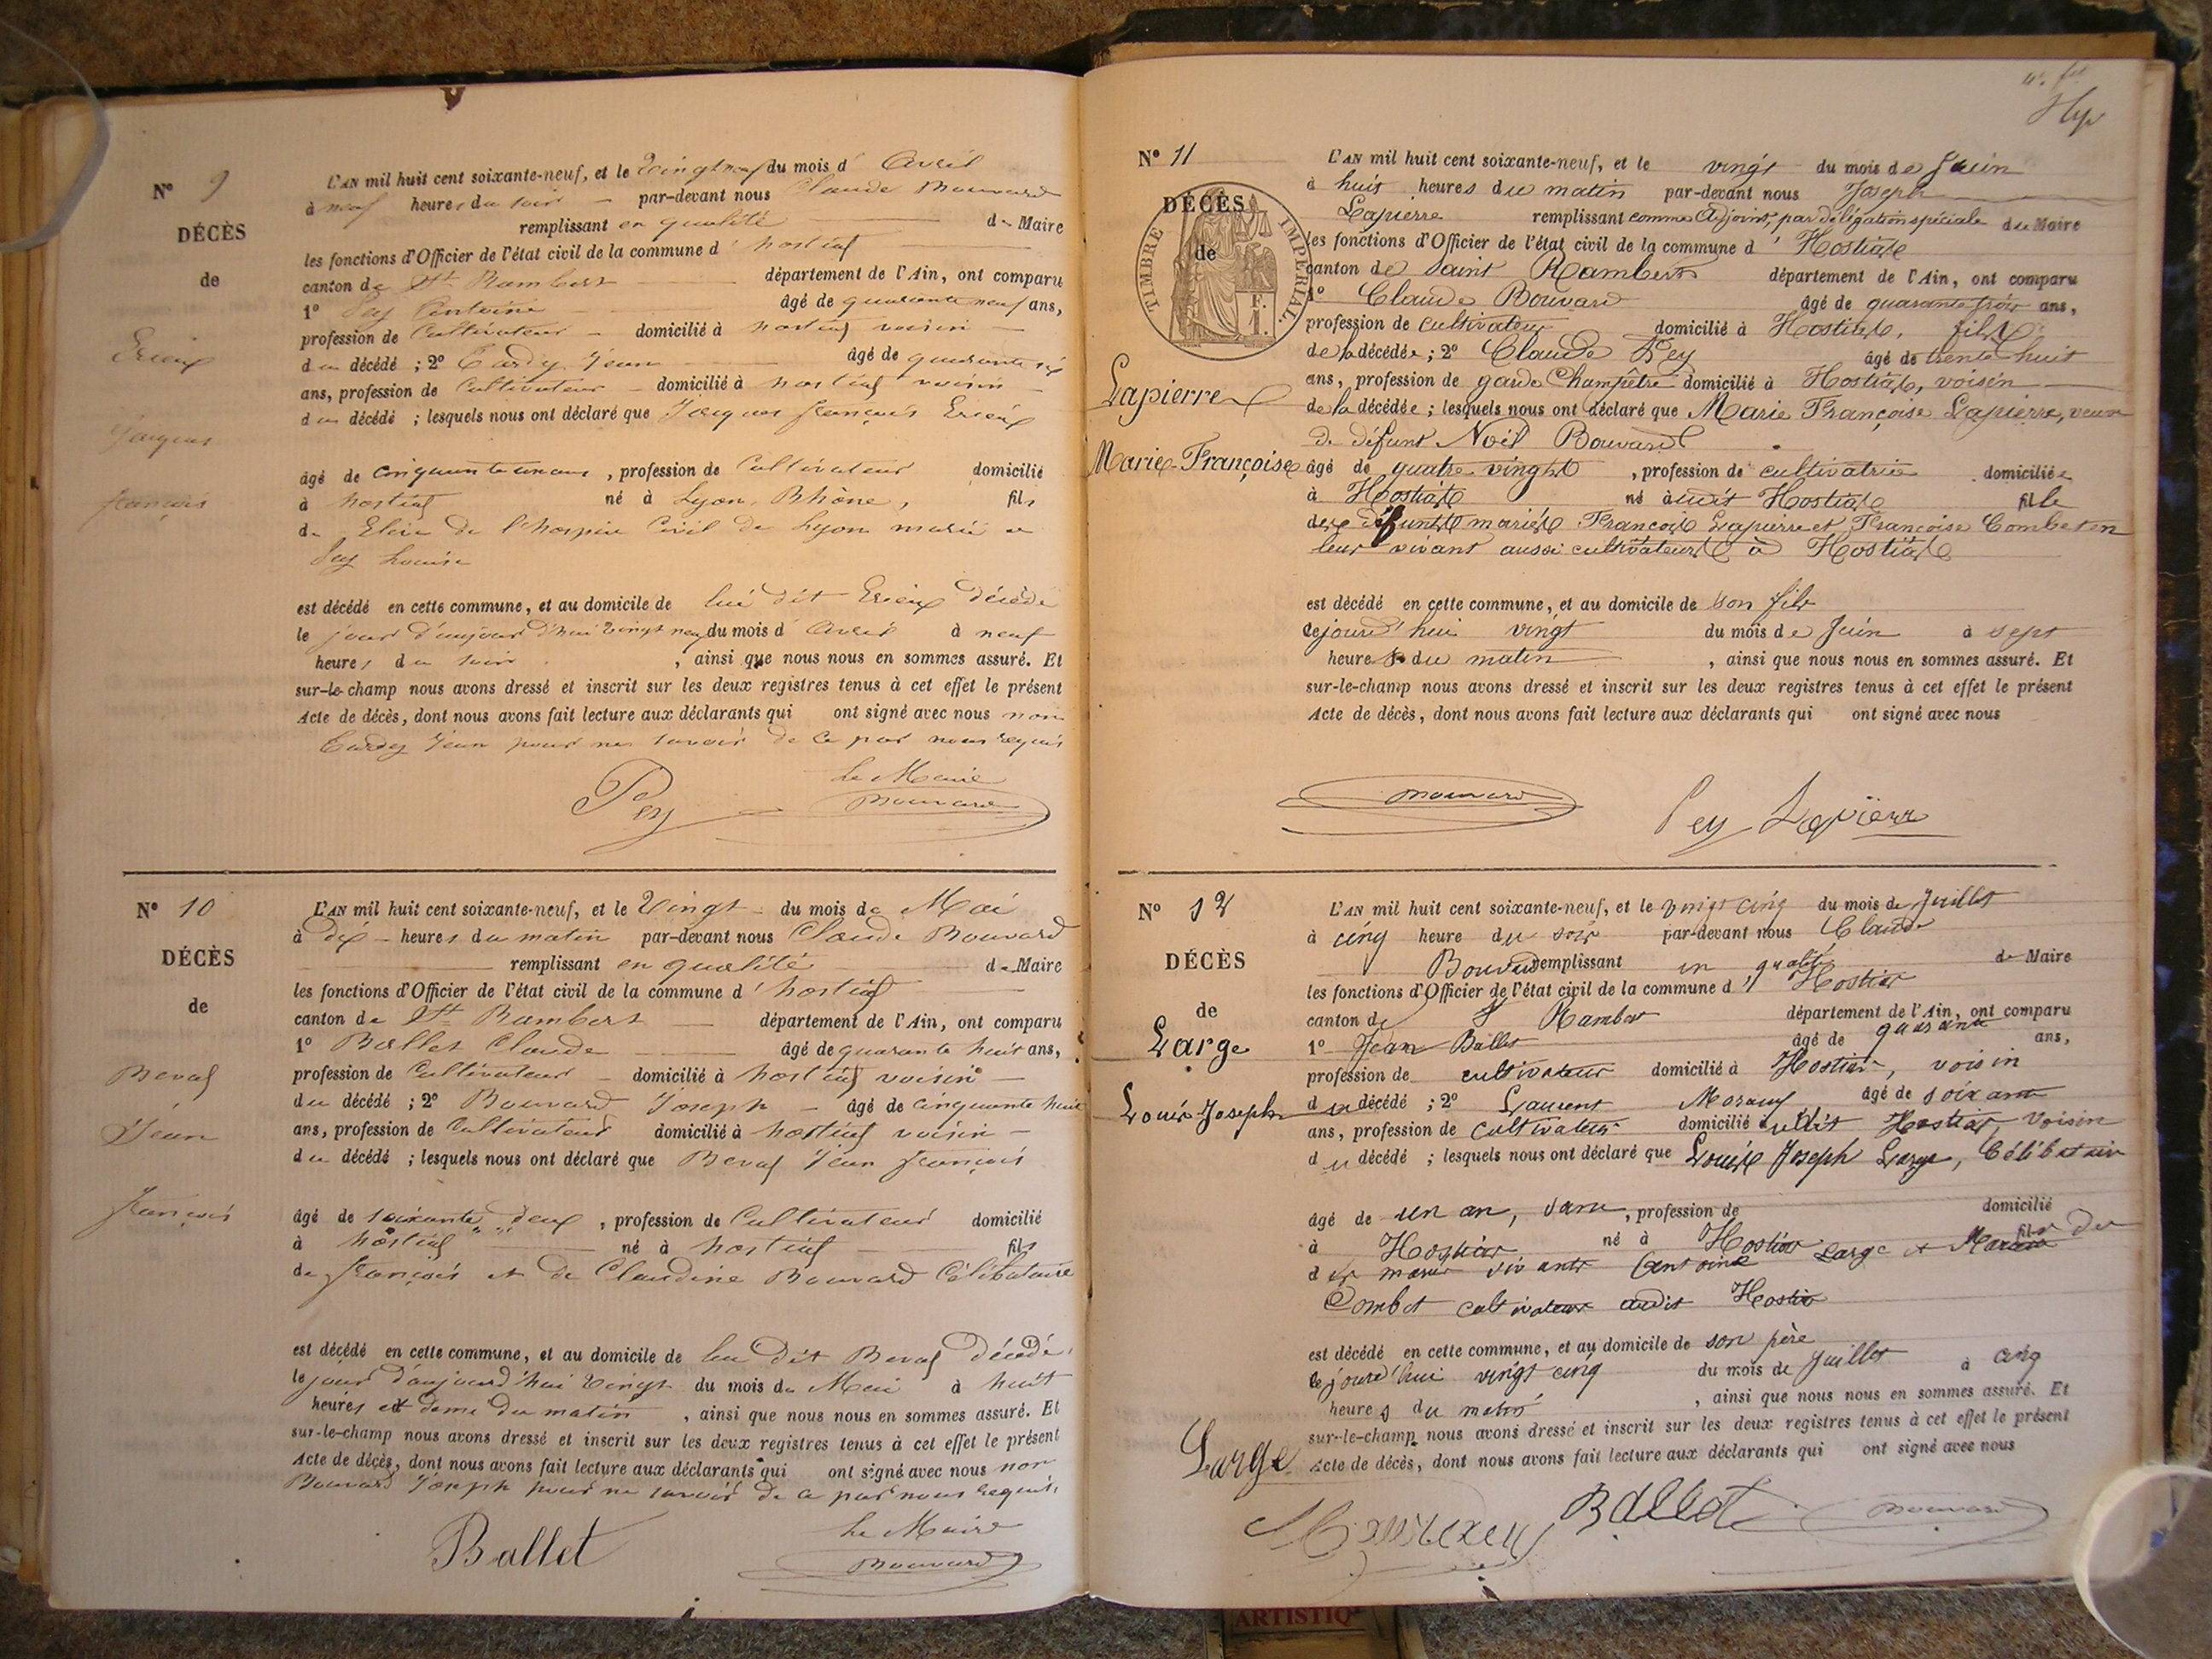 N° 9
DÉCÈS
de
Erieux
Jacques
françois
L'AN mil huit cent soixante-neuf, et le vingt neuf du mois d' Avril
à neuf heures du soir par-devant nous Claude Bouvard
remplissant en qualité de Maire
les fonctions d'Officier de l'état civil de la commune d' hostias
canton de St Rambert département de l'Ain, ont comparu
1° Pey Antoine âgé de quarante neuf ans,
profession de Cultivateur domicilié à hostias voisin
du décédé ; 2° Tardy Jean âgé de quarante six
ans, profession de Cultivateur domicilié à hostias voisin
du décédé ; lesquels nous ont déclaré que Jacques françois Erieux
âgé de cinquante un ans, profession de Cultivateur domicilié
à hostias né à Lyon, Rhône, fils
de Elève de l'hospice Civil de Lyon marié a
Pey Louise
est décédé en cette commune, et au domicile de lui dit Erieux décédé
le jour d'aujourd'hui vingt neuf du mois d' Avril à neuf
heures du soir, ainsi que nous nous en sommes assuré. Et
sur-le-champ nous avons dressé et inscrit sur les deux registres tenus à cet effet le présent
Acte de décès, dont nous avons fait lecture aux déclarants qui ont signé avec nous non
Tardy Jean pour ne savoir de ce par nous requis
Le Maire
Pey Bouvard
N° 10
DÉCÈS
de
Beval
Jean
françois
L'AN mil huit cent soixante-neuf, et le Vingt du mois de Mai
à dix heures du matin par-devant nous Claude Bouvard
remplissant en qualité de Maire
les fonctions d'Officier de l'état civil de la commune d' hostias
canton de St Rambert département de l'Ain, ont comparu
1° Ballet Claude âgé de quarante huit ans,
profession de Cultivateur domicilié à hostias voisin
du décédé ; 2° Bouvard Joseph âgé de cinquante huit
ans, profession de Cultivateur domicilié à hostias voisin
du décédé ; lesquels nous ont déclaré que Beval Jean françois
âgé de soixante deux, profession de Cultivateur domicilié
à hostias né à hostias fils
de françois et de Claudine Bouvard Célibataire
est décédé en cette commune, et au domicile de lui dit Beval décédé
le jour d'aujourd'hui Vingt du mois de Mai à huit
heures et demi du matin, ainsi que nous nous en sommes assuré. Et
sur-le-champ nous avons dressé et inscrit sur les deux registres tenus à cet effet le présent
Acte de décès, dont nous avons fait lecture aux déclarants qui ont signé avec nous non
Bouvard Joseph pour ne savoir de ce par nous requis.
Le Maire
Ballet Bouvard
N° 11
DÉCÈS
de
TIMBRE IMPERIAL
Lapierre
Marie-Françoise
L'AN mil huit cent soixante-neuf, et le vingt du mois de Juin
à huit heures du matin par-devant nous Joseph
Lapierre remplissant comme Adjoint, par délégation spéciale du Maire
les fonctions d'Officier de l'état civil de la commune d' Hostias
canton de Saint Rambert département de l'Ain, ont comparu
1° Claude Bouvard âgé de quarante trois ans,
profession de cultivateur domicilié à Hostias, fils
de la décédée ; 2° Claude Pey âgé de trente huit
ans, profession de garde Champêtre domicilié à Hostias, voisin
de la décédée ; lesquels nous ont déclaré que Marie Françoise Lapierre, veuve
de défunt Noël Bouvard
âgé de quatre vingts, profession de cultivatrice domiciliée
à Hostias né audit Hostias fille
des défunts mariés François Lapierre et Françoise Combet en
leur vivant aussi cultivateurs à Hostias
est décédé en cette commune, et au domicile de son fils
cejourd'hui vingt du mois de Juin à sept
heures du matin, ainsi que nous nous en sommes assuré. Et
sur-le-champ nous avons dressé et inscrit sur les deux registres tenus à cet effet le présent
Acte de décès, dont nous avons fait lecture aux déclarants qui ont signé avec nous
Bouvard Pey Lapierre
N° 12
DÉCÈS
de
Large
Louis Joseph
L'AN mil huit cent soixante-neuf, et le vingt cinq du mois de Juillet
à cinq heure du soir par-devant nous Claude
Bouvard remplissant en qualité de Maire
les fonctions d'Officier de l'état civil de la commune d' Hostias
canton de St Rambert département de l'Ain, ont comparu
1° Jean Ballet âgé de quarante ans,
profession de cultivateur domicilié à Hostias, voisin
du décédé ; 2° Laurent âgé de soixante
ans, profession de cultivateur domicilié audit Hostias, voisin
du décédé ; lesquels nous ont déclaré que Louis Joseph Large, Célibataire
âgé de un an, sans, profession de domicilié
à Hostias né à Hostias fils de
des mariés vivants Antoine Large et
Combet cultivateur audit Hostias
est décédé en cette commune, et au domicile de son père
cejourd'hui vingt cinq du mois de Juillet à cinq
heures du matin, ainsi que nous nous en sommes assuré. Et
sur-le-champ nous avons dressé et inscrit sur les deux registres tenus à cet effet le présent
Acte de décès, dont nous avons fait lecture aux déclarants qui ont signé avec nous
Large
Ballet Bouvard
ARTISTIQ